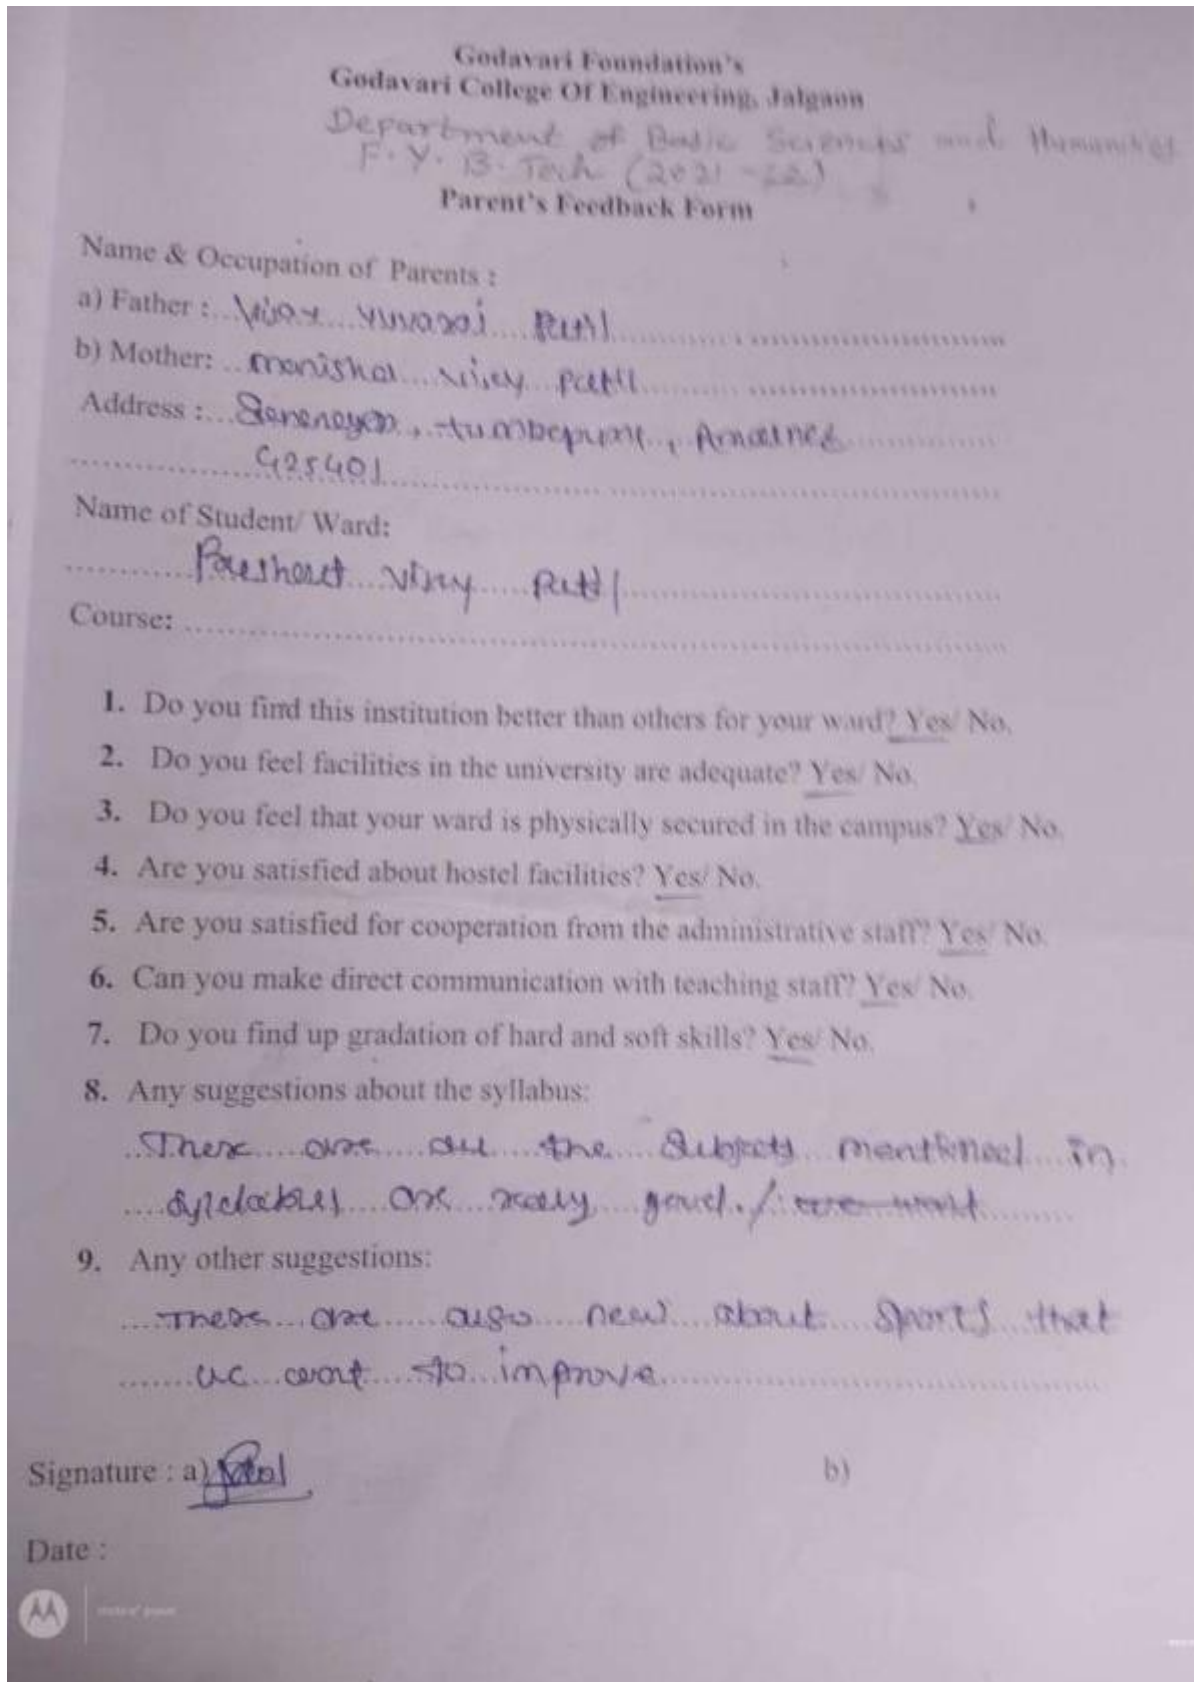 Godavari Foundation's
Godavari College Of Engineering, Jalgaon
Department of Basic Sciences and Humanities
F.Y. B. Tech (2021-22)
Parent's Feedback Form
Name & Occupation of Parents :
a) Father : Vijay Yuvaraj Patil
b) Mother: Manisha Vijay Patil
Address : Amalner
425401
Name of Student/ Ward:
Vijay Patil
Course:
1. Do you find this institution better than others for your ward? Yes/ No.
2. Do you feel facilities in the university are adequate? Yes/ No.
3. Do you feel that your ward is physically secured in the campus? Yes/ No.
4. Are you satisfied about hostel facilities? Yes/ No.
5. Are you satisfied for cooperation from the administrative staff? Yes/ No.
6. Can you make direct communication with teaching staff? Yes/ No.
7. Do you find up gradation of hard and soft skills? Yes/ No.
8. Any suggestions about the syllabus:
There are all the Subjects mentioned in
are really good.
9. Any other suggestions:
There are also new about sports that
we want to improve
Signature : a) b)
Date :